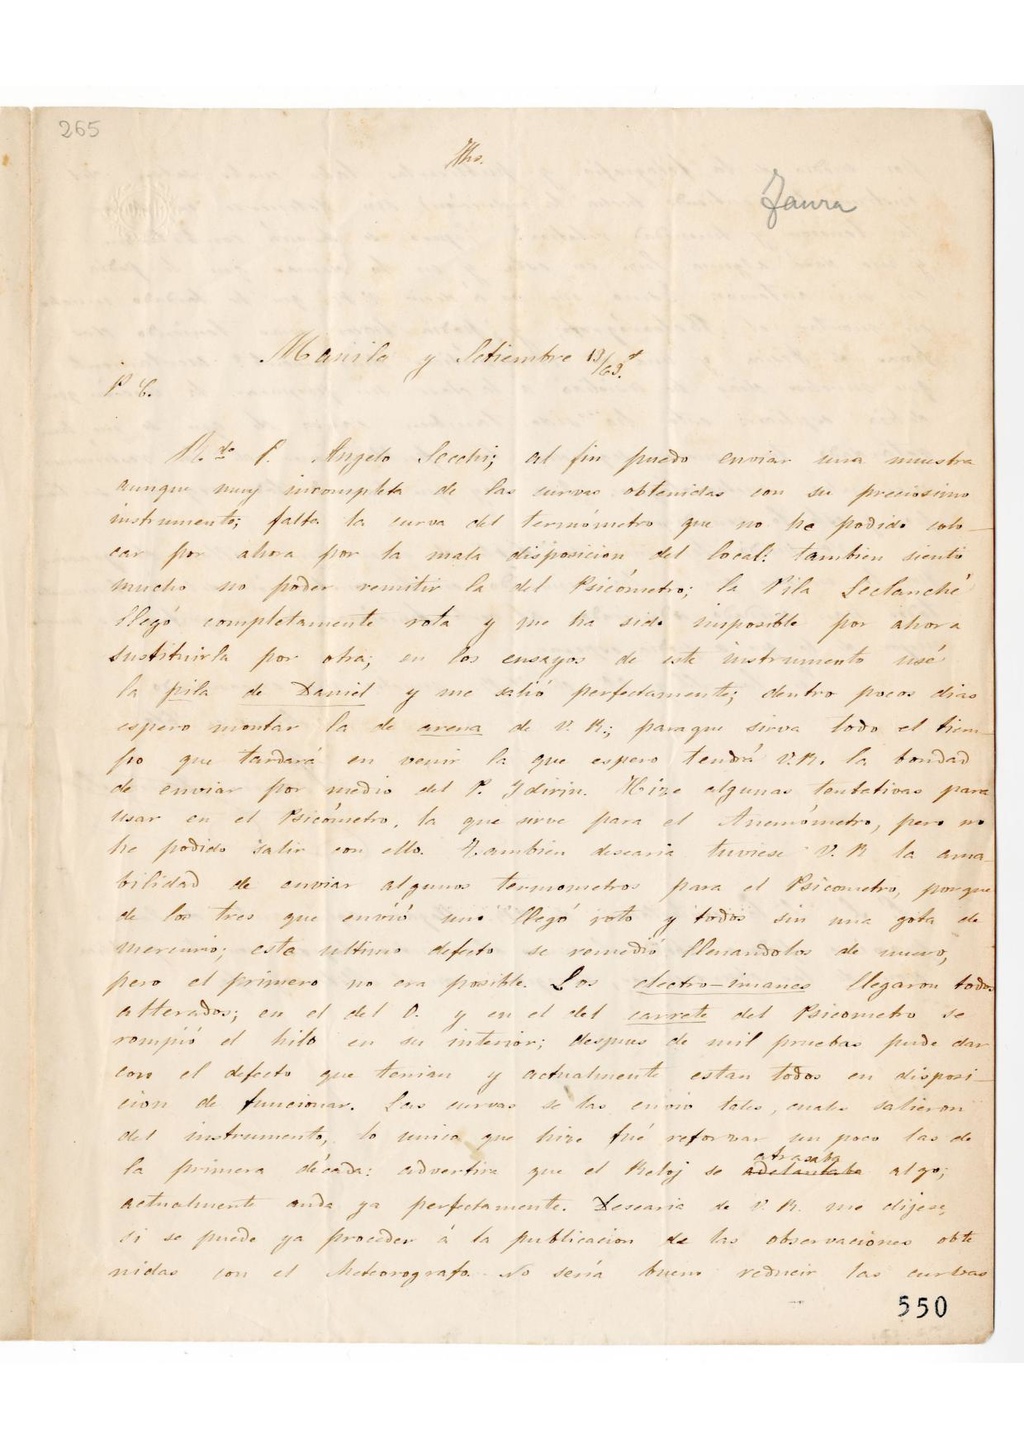 265
Jhs.
Faura
Manila y Setiembre 13/69.
P. C.
R.do P. Angelo Secchi; al fin puedo enviar una muestra
aunque muy incompleta de las curvas obtenidas con su preciosimo
instrumento; falta la curva del termómetro que no he podido colo-
car por ahora por la mala disposicion del local: tambien siento
mucho no poder remitir la del Psicómetro; la Pila Leclanché
llegó completamente rota y me ha sido imposible por ahora
sustituirla por otra; en los ensayos de este instrumento usé
la pila de Daniel y me salió perfectamente; dentro pocos dias
espero montar la de arena de V. R.; para que sirva todo el tiem-
po que tardará en venir la que espero tendrá V. R. la bondad
de enviar por medio del P. Hize algunas tentativas para
usar en el Psicómetro, la que sirve para el Anemómetro, pero no
he podido salir con ello. Tambien desearia tuviese V. R. la ama-
bilidad de enviar algunos termometros para el Psicometro, porque
de los tres que envió uno llegó roto y todos sin una gota de
mercurio; este ultimo defecto se remedió llenandolos de nuevo,
pero el primero no era posible. Los electro-imanes llegaron todos
alterados; en el del O. y en el del carrete del Psicometro se
rompió el hilo en su interior; despues de mil pruebas pude dar
con el defecto que tenian y actualmente estan todos en disposi-
cion de funcionar. Las curvas se las envio tales, cuales salieron
del instrumento, lo unico que hize fué reforzar un poco las de
la primera década: advertira que el Reloj se adelantaba atrasaba algo;
actualmente anda ya perfectamente. Desearia de V. R. me dijese,
si se puede ya proceder á la publicacion de las observaciones obte
nidas con el Meteorografo. No seria bueno reducir las curvas
550